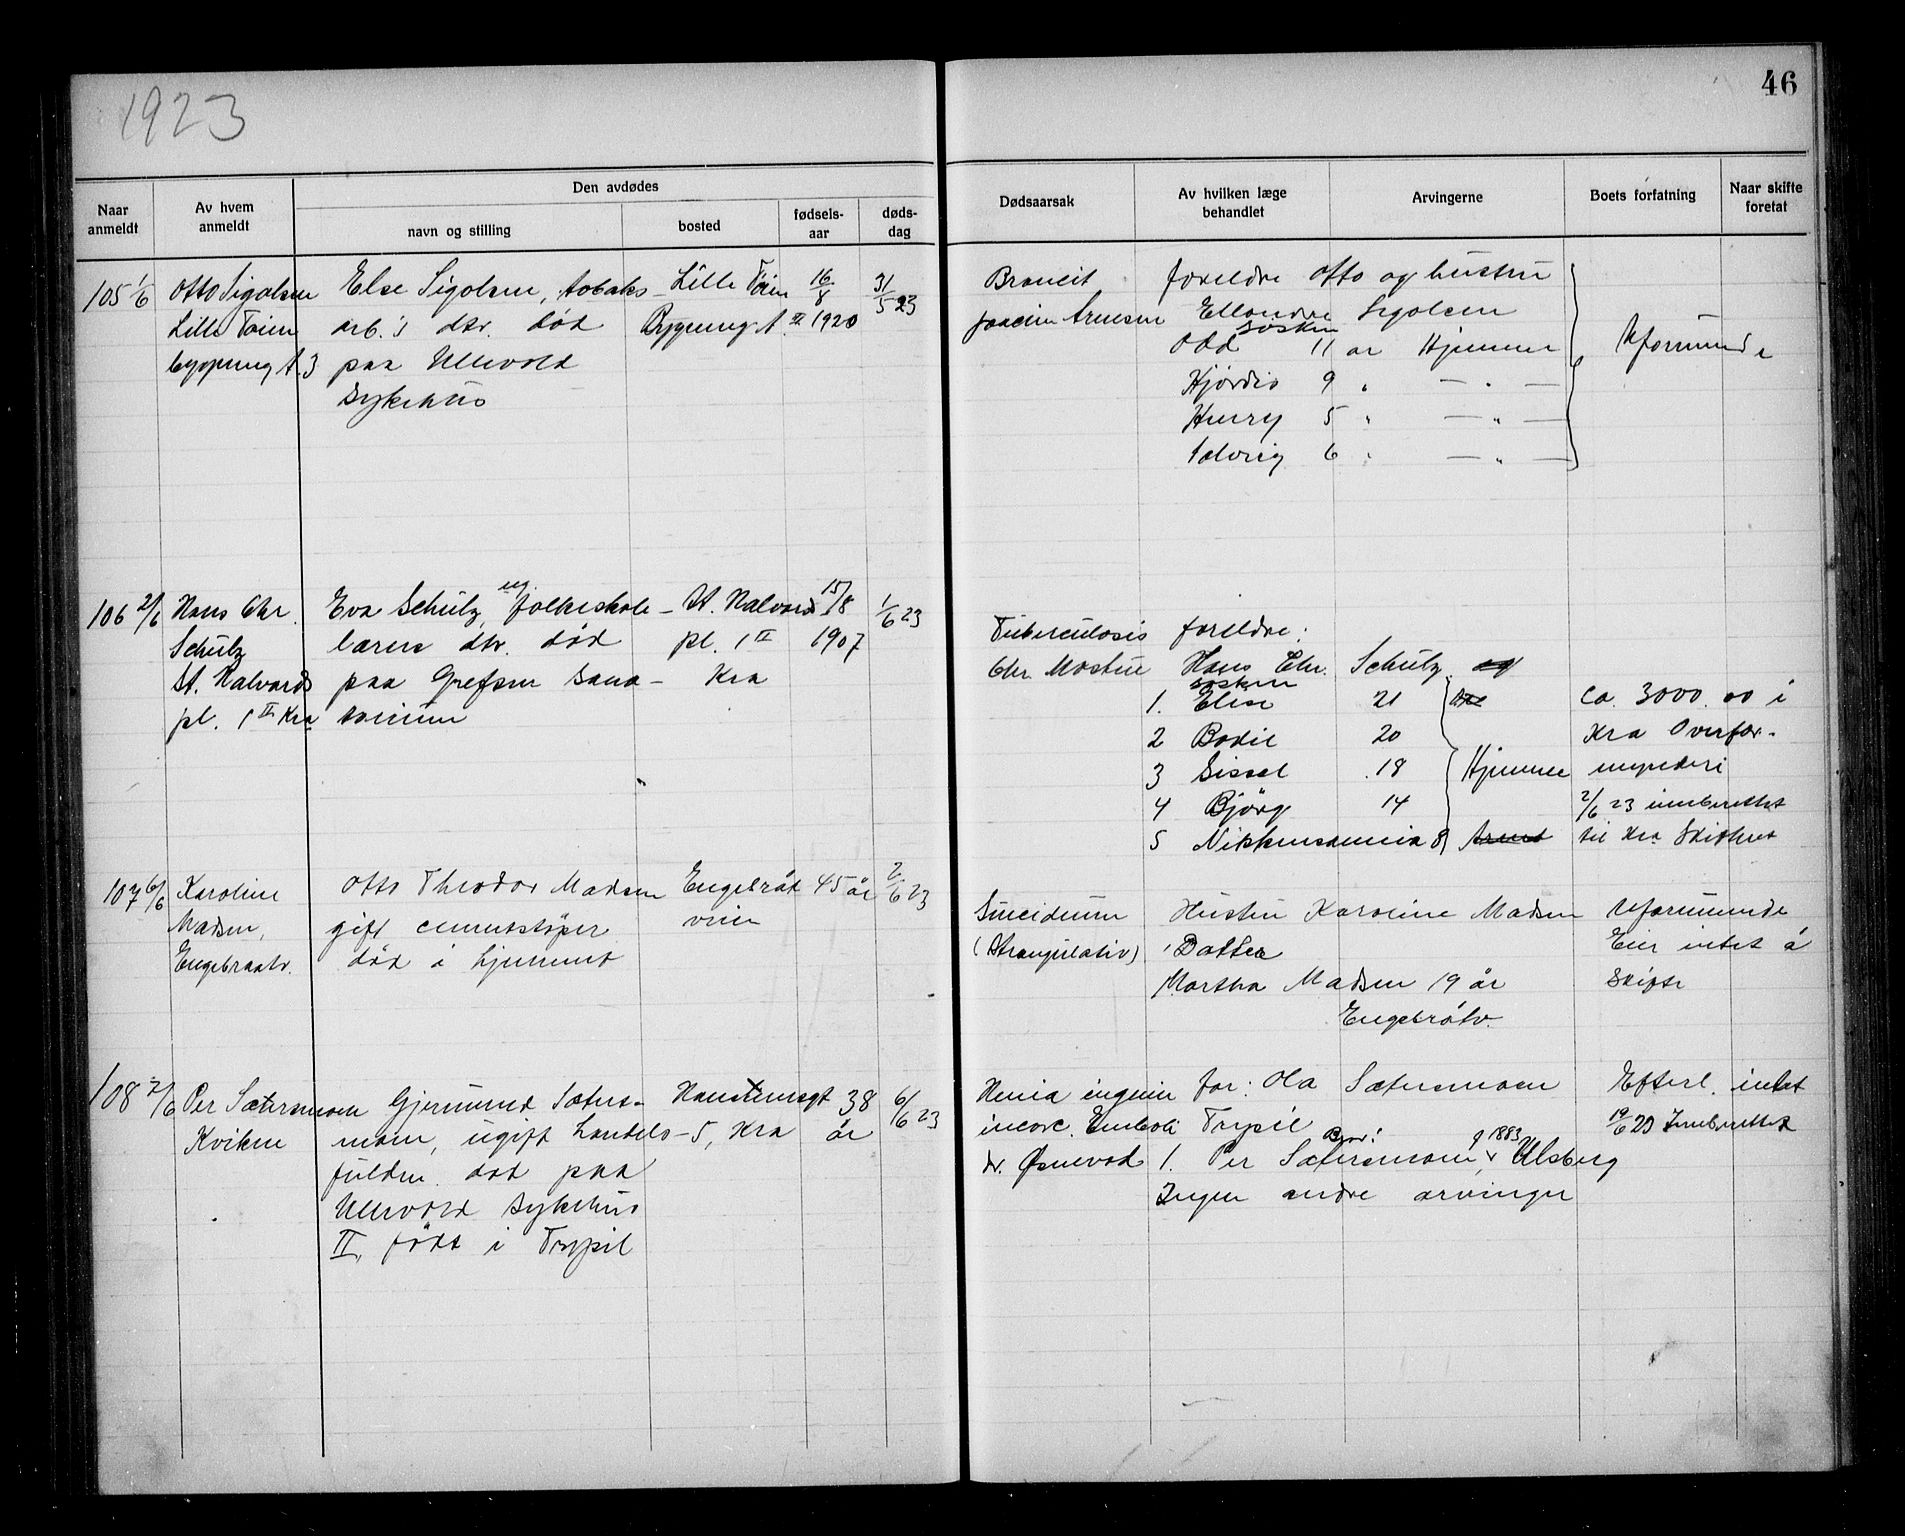 1923
46
Naar anmeldt
Av hvem anmeldt
Den avdødes
navn og stilling
bosted
fødsels-aar
døds-dag
Dødsaarsak
Av hvilken læge behandlet
Arvingerne
Boets forfatning
Naar skifte foretat
105 1/6 Otto Sigolsen Else Sigolsen, tobaks- Lille Töien 16/8 31/5 23
Lille Töien arb.'s dtr. död Bygning A. II 1920
bygning A.3 paa Ullevold
Sykehus
Broncit foreldre Otto og hustru
Joachim Arnesen Sigolsen
søsken
Odd 11 år Hjemme Uformuende
Hjördis 9 " — " —
Henry 5 " — " —
Solveig 6 " — " —
106 2/6 Hans Chr. Eva Schulz, ug. folkeskole- St. Halvards 15/8 1/6 23
Schulz lærers dtr. död pl. 1 II 1907
St. Halvards paa Grefsen Sana- Kra
pl. 1 II Kra torium
Tuberculosis foreldre:
Chr. Mostue Hans Chr. Schulz og
søsken
1. Elise 21 ca. 3000.00 i
2 Bodil 20 Kra Overfor-
3 Sissel 18 Hjemme mynderi
4 Björg 14 2/6 23 innberettet
5 8 til Kra Skifteret
107 6/6 Karoline Otto Theodor Madsen Engebråt 45 år 2/6 23
Madsen, gift cementstöper veien
Engebraatv. död i hjemmet
Suicidium Hustru Karoline Madsen Uformuende
(Strangulatio) 1 Datter Eier intet å
Martha Madsen 19 år Skifte
Engebråtv.
108 7/6 Per Sætersmoen Gjermund Sæters- 38 6/6 23
Kvikne moen, ugift handels- 5, Kra år
fuldm. död paa
Ullevold Sykehus
II, födt i Trysil
Hernia inguin far: Ola Sætersmoen Efterl. intet
incarc. Emboli Trysil 19/6 23 Innberettet
Bror: f 1883
dr. 1. Per Sætersmoen, Ulsberg
Ingen andre arvinger